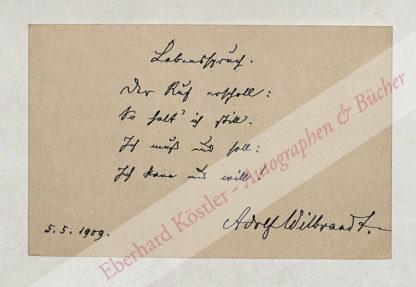 Lebensspruch.
Der Ruf erscholl:
So halt' ich still.
Ich muß und soll:
Ich kann und will!
5.5.1909.
Adolf Wilbrandt.
Eberhard Köstler - Autographen & Bücher